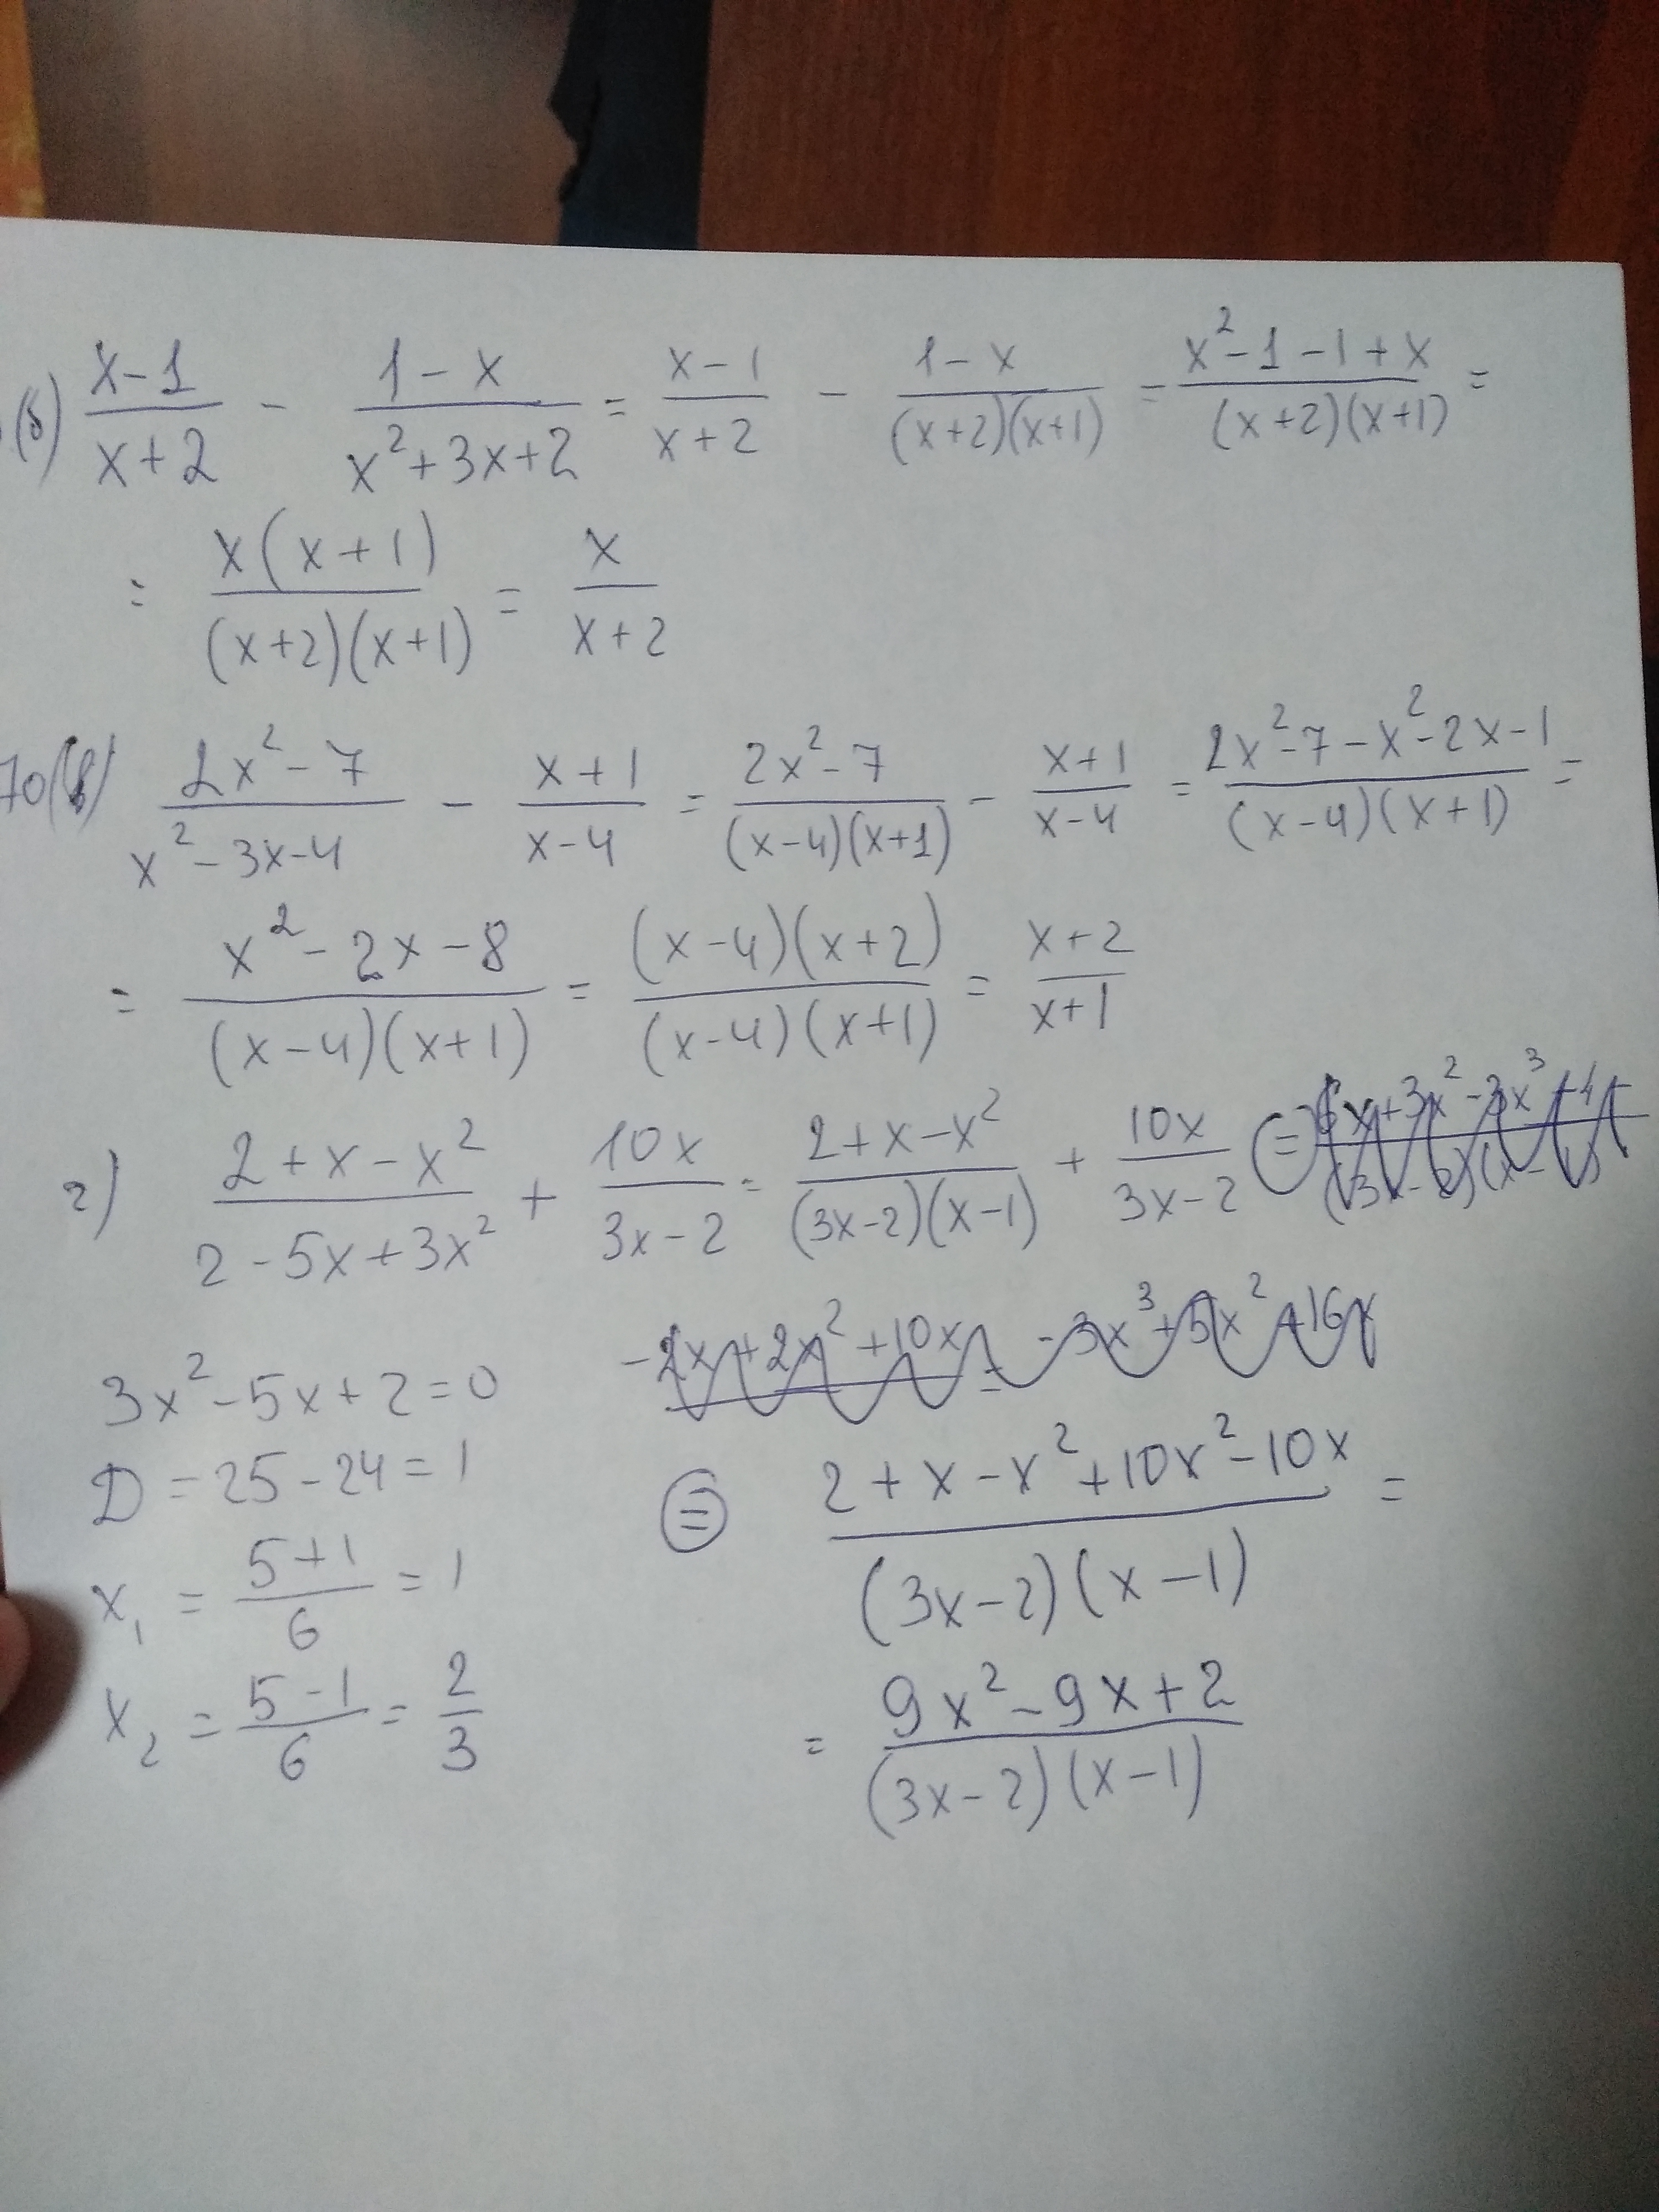 (б) (x-1)/(x+2) - (1-x)/(x²+3x+2) = (x-1)/(x+2) - (1-x)/((x+2)(x+1)) = (x²-1-1+x)/((x+2)(x+1)) =
= (x(x+1))/((x+2)(x+1)) = x/(x+2)
70(в) (2x²-7)/(x²-3x-4) - (x+1)/(x-4) = (2x²-7)/((x-4)(x+1)) - (x+1)/(x-4) = (2x²-7-x²-2x-1)/((x-4)(x+1)) =
= (x²-2x-8)/((x-4)(x+1)) = ((x-4)(x+2))/((x-4)(x+1)) = (x+2)/(x+1)
г) (2+x-x²)/(2-5x+3x²) + 10x/(3x-2) = (2+x-x²)/((3x-2)(x-1)) + 10x/(3x-2) =
-2x+2x²+10x = -3x³+5x²+16x
3x²-5x+2=0
D=25-24=1
x₁ = (5+1)/6 = 1
x₂ = (5-1)/6 = 2/3
= (2+x-x²+10x²-10x)/((3x-2)(x-1)) =
= (9x²-9x+2)/((3x-2)(x-1))